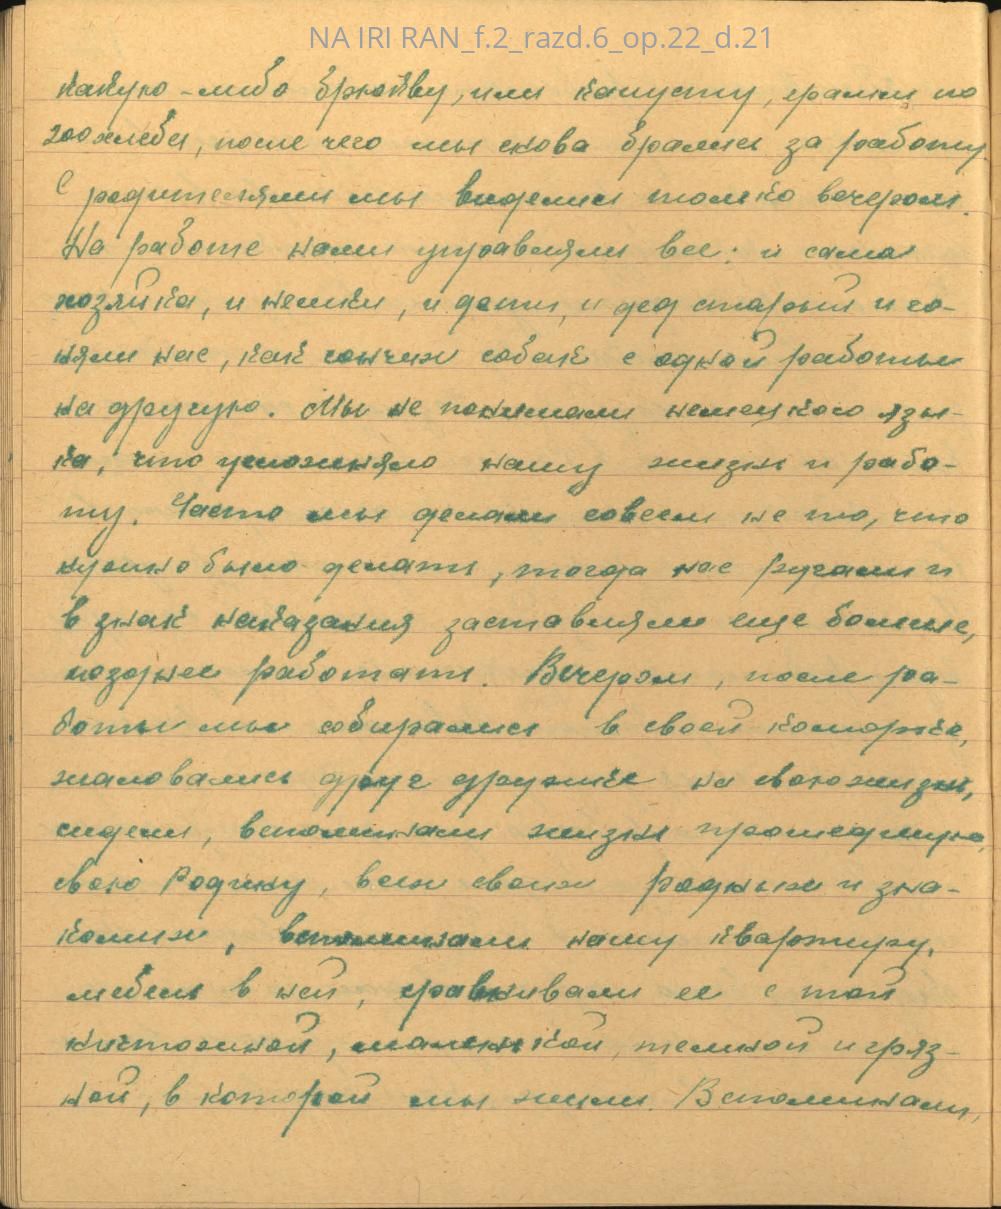 NA IRI RAN_f.2_razd.6_op.22_d.21
какую-либо брюкву, или капусту, грамм по
200 хлеба, после чего мы снова брались за работу.
С родителями мы виделись только вечером.
На работе нами управляли все: и сама
хозяйка, и немки, и дети, и дед старый и го-
няли нас, как гончих собак с одной работы
на другую. Мы не понимали немецкого язы-
ка, что усложняло нашу жизнь и рабо-
ту. Часто мы делали совсем не то, что
нужно было делать, тогда нас ругали и
в знак наказания заставляли еще больше,
позднее работать. Вечером, после ра-
боты мы собирались в своей каморке,
жаловались друг дружке на свою жизнь,
сидели, вспоминали жизнь прошедшую,
свою Родину, всех своих родных и зна-
комых, вспоминали нашу квартиру,
мебель в ней, сравнивали ее с той
ничтожной, маленькой, темной и гряз-
ной, в которой мы жили. Вспоминали,